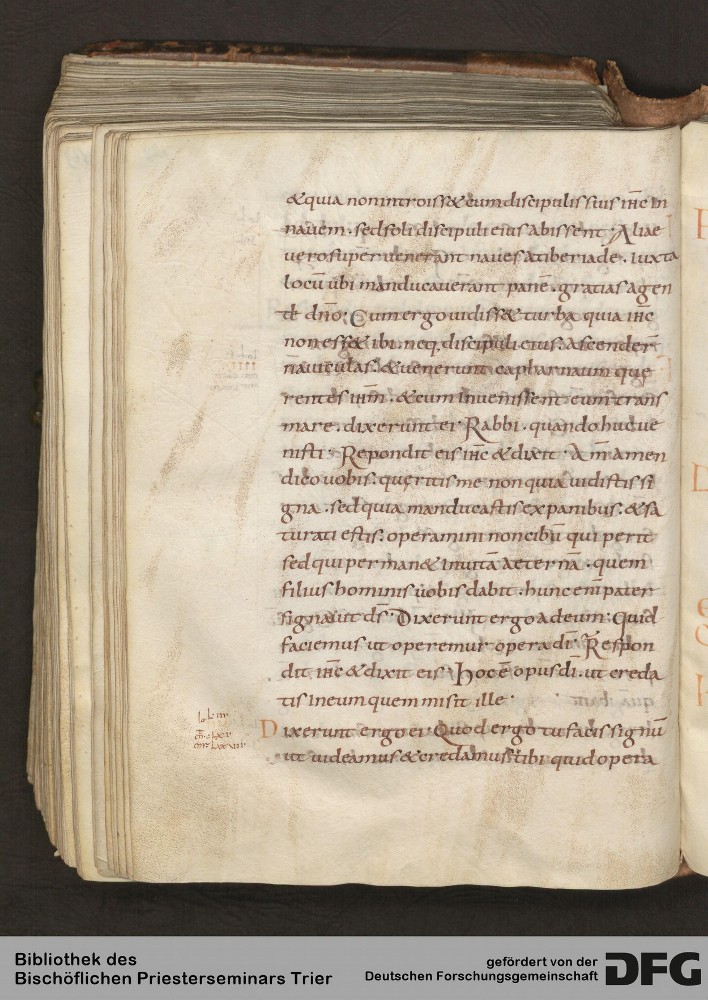 &quia nonintroiss& cumdiscipulissuis ihc in
nauem. sedsoli discipuli eius abissent. Aliae
uerosuperuenerant naues atiberiade. iuxta
locū ubi manducauerant panē. gratias agen
te dno; Cum ergo uidiss& turba quia ihc
non ess& ibi. neq; discipuli eius. ascender̄
nauiculas. & uenerunt capharnaum que
rentes ihm. & cum inuenissent eum trans
mare. dixerunt ei Rabbi. quando huc ue
nisti. Repondit eis ihc & dixit. Am amen
dico uobis. queritis me non quia uidistis si
gna. sed quia manducastis ex panibus. & sa
turati estis. operamini non cibū qui perit
sed qui perman& in uitā aeternā. quem
filius hominis uobis dabit. hunc eni pater
signauit ds. Dixerunt ergo ad eum. Quid
faciemus ut operemur opera di. Respon
dit ihc & dixit eis. Hoc ē opus di. ut creda
tis in eum quem misit ille.
Dixerunt ergo ei Quod ergo tu facis signū
ut uideamus & credamus tibi quid opera
Bibliothek des
Bischöflichen Priesterseminars Trier
gefördert von der
Deutschen Forschungsgemeinschaft
DFG